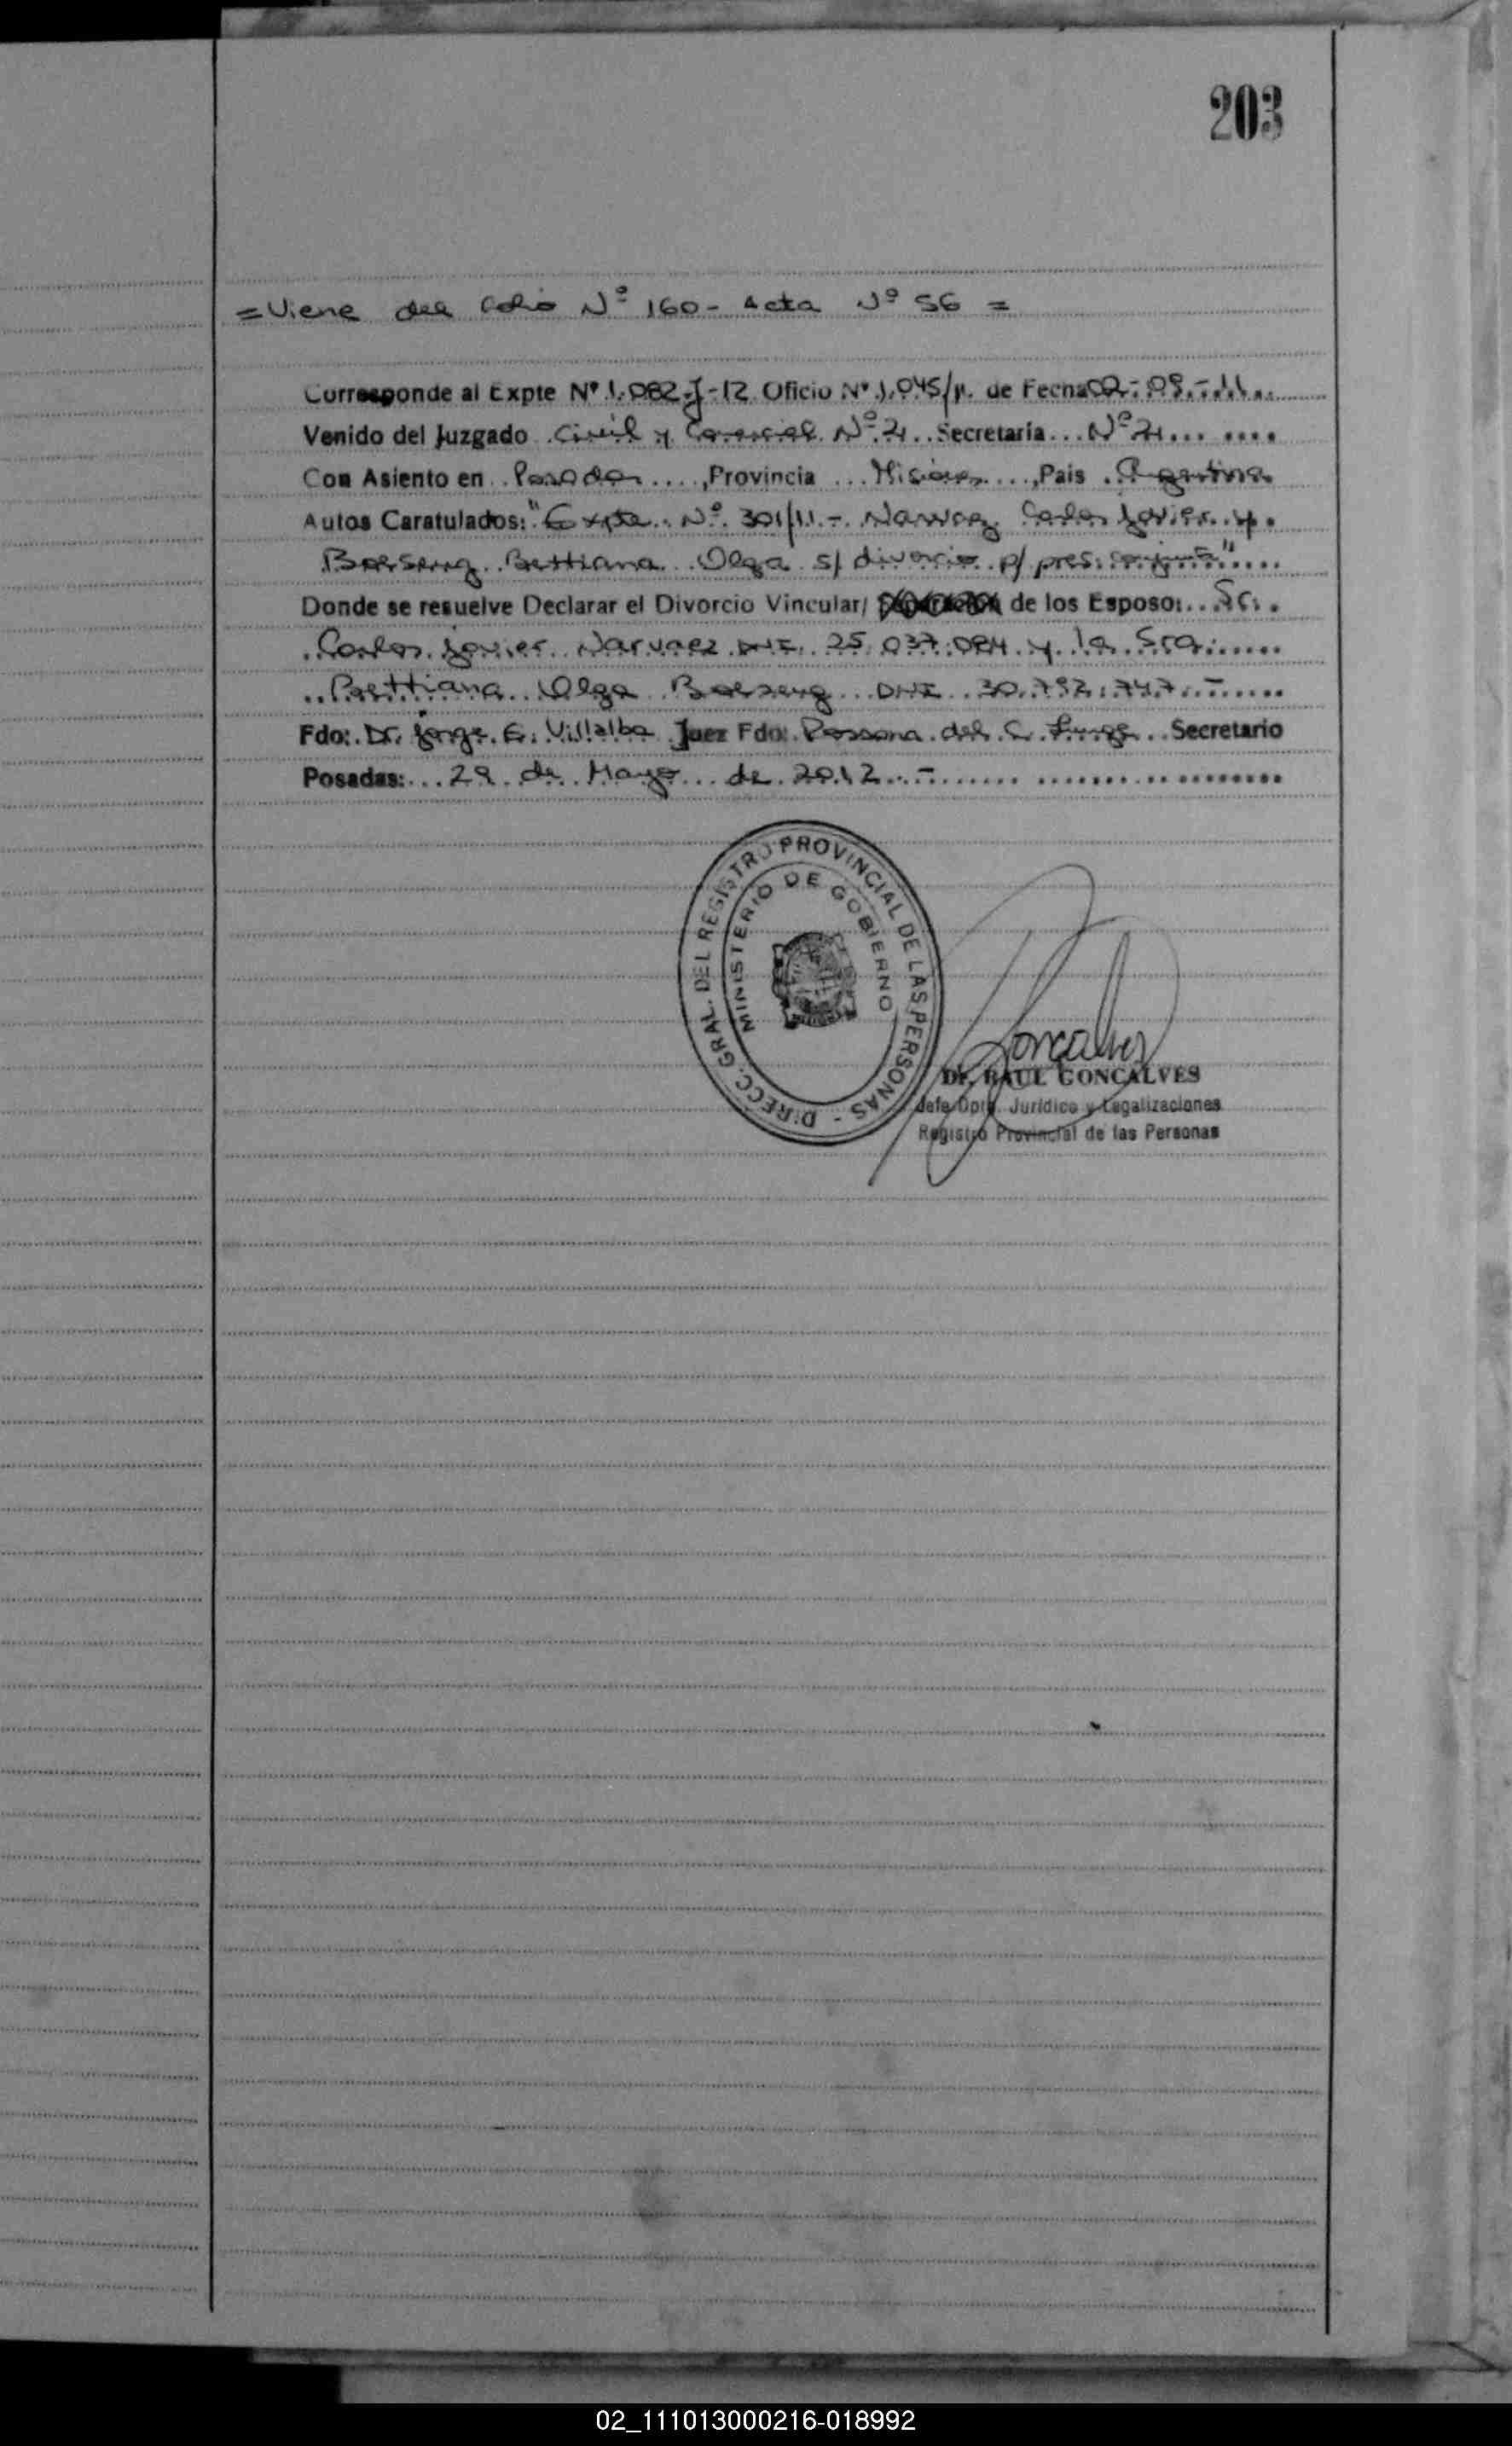 203
=Viene del Folio Nº 160- Acta Nº 56 =
Corresponde al Expte Nº 1.082-J-12 Oficio Nº 1.045/11. de Fecha 02-09-11..
Venido del Juzgado Civil y Comercial Nº 4.. Secretaría... Nº 4... ....
Con Asiento en ..Posadas....,Provincia ...Misiones....,Pais ..Argentina
Autos Caratulados: "Expte. Nº. 301/11.- Narvaez Carlos Javier y.
Bettiana Olga s/ divorcio p/ pres. conjunta".....
Donde se resuelve Declarar el Divorcio Vincular/ de los Esposo:..Sr..
.Carlos Javier Narvaez DNI. 25.037.084 y la Sra......
..Bettiana Olga DNI 30.792.747.-......
Fdo: Dr. Jorge E. Villalba Juez Fdo: Rossana del C. Secretario
Posadas:...29 de Mayo de 2012..-
DIRECC. GRAL. DEL REGISTRO PROVINCIAL DE LAS PERSONAS -
MINISTERIO DE GOBIERNO
Goncalves
Dr. RAUL GONCALVES
Jefe Dpto. Jurídico y Legalizaciones
Registro Provincial de las Personas
02_111013000216-018992